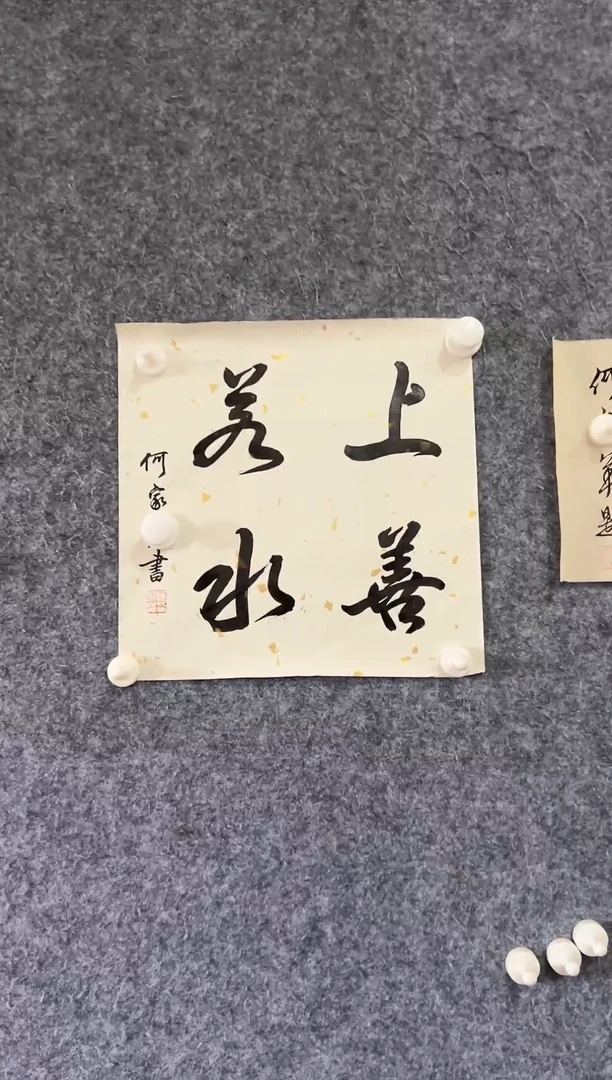 上善
若水
何家 書
何
軍題